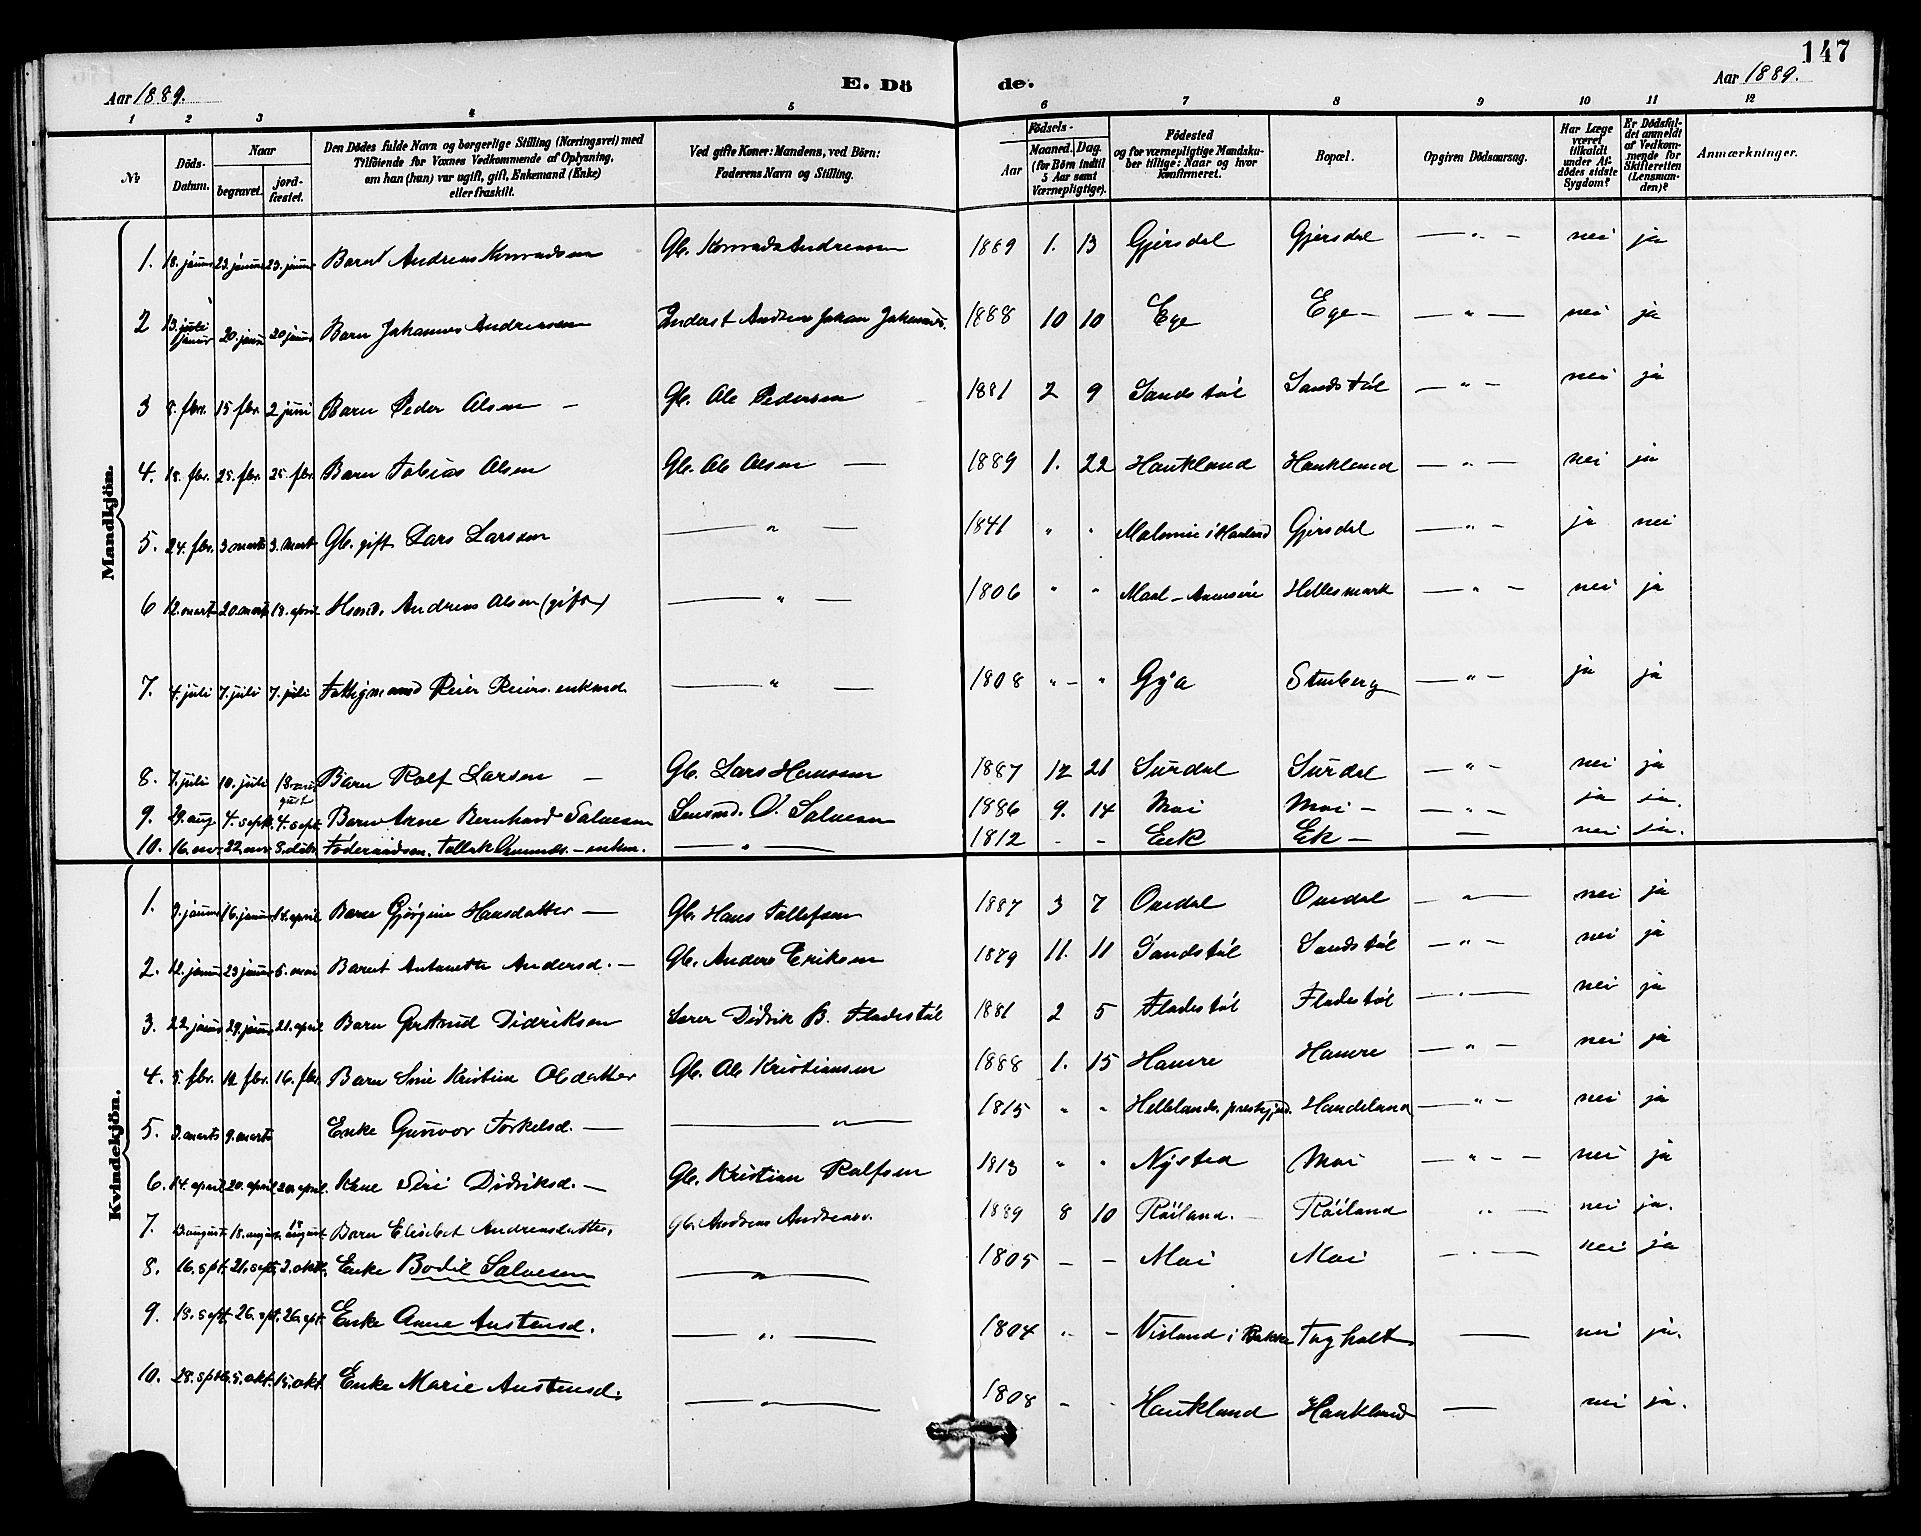 147
Aar 1889. E. Dö de. Aar 1889.
1 2 3 4 5 6 7 8 9 10 11 12
№ Döds-Datum. Naar begravet. jordfæstet. Den Dödes fulde Navn og borgerlige Stilling (Næringsvei) med Tilföiende for Voxnes Vedkommende af Oplysning, om han (hun) var ugift, gift, Enkemand (Enke) eller fraskilt. Ved gifte Koner: Mandens, ved Börn: Faderens Navn og Stilling. Födsels- Aar Maaned. Dag. (for Börn indtil 5 Aar samt Værnepligtige). Födested og for værnepligtige Mandskaber tillige: Naar og hvor konfirmeret. Bopæl. Opgiven Dödsaarsag. Har Læge været tilkaldt under Afdödes sidste Sygdom? Er Dödsfaldet anmeldt af Vedkommende for Skifteretten (Lensmanden)? Anmærkninger.
Mandkjön.
1. 18. januar 23. januar 23. januar Barn Andreas Konradsen Gb. Konrad Andreassen 1889 1. 13 Gjersdal Gjersdal — " — nei ja
2 13. januar 20. januar 20. januar Barn Johannes Andreassen Andreas Johan Johannes. 1888 10 10 Ege Ege — — " — nei ja
3 8. fbr. 15 fbr. 2 juni Barn Peder Olsen — Gb. Ole Pedersen 1881 2 9 Sandstöl Sandstöl — " — nei ja
4. 18. fbr. 25. fbr. 25. fbr Barn Tobias Olsen Gb. Ole Olsen — 1889 1. 22 Haukland Haukland — " — nei ja
5. 24. fbr. 3 marts 3. mart Gb. gift Lars Larsen — " — 1841 " " i Gjersdal — " — ja nei
6 12. marts 20. marts 13. april Andreas Olsen (gift) — " — 1806 " " Hellesmark — " — nei ja
7. 4. juli 7. juli 7. juli Fattigmand Peier Peiers. enkmd. — " — 1808 " — " Gya Stenberg — " — ja ja
8. 7. juli 10. juli 18. august Barn Rolf Larsen — Gb. Lars Hansen 1887 12 21 Surdal Surdal — " — nei ja
9. 29. aug 4. sept. 4. sept. Barn Arne Bernhard Salvesen Lensmd. O. Salvesen 1886 9. 14 Moi Moi — — " — ja ja.
10. 16. nov. 22. nov. 8. dcbr. Föderaadsm. Tollak Omunds. — enkm. — " — 1812 - - Eek Ek — — nei ja.
Kvindekjön.
1. 9. januar 16. januar 18. april Barn Gjörgine Hansdatter — Gb. Hans Tollefsen 1887 3 7 Ovedal Ovedal — " — nei ja
2. 12. januar 23 januar 5. mai Barn Antonette Andersd. — Gb. Anders Eriksen 1879 11. 11 Sandstöl Sandstöl — " — nei ja
3. 22. januar 29. januar 21. april Barn Gertrud Didriksen Didrik B. Fladestöl 1881 2 5 Fladestöl Fladestöl — " — nei ja
4. 5. fbr. 12 fbr. 16. fbr. Barn Sine Kristine Olsdatter Gb. Ole Kristiansen 1888 1. 15 Hamre Hamre — " — nei ja
5. 3. marts 9. marts Enke Gunvor Torkelsd. — — " — 1815 " " Hellelands. prestgjæld. Handeland — " — nei ja
6. 14. april 20. april 20. april. Kone Siri Didriksd. — Gb. Kristian Rolfsen 1813 " " Nysted Moi — " — — nei ja
7. 13. august 18. august 18 august Barn Elisabet Andreasdatter. Gb. Andreas Andreass. 1889 8 10 Röiland. — Röiland " — nei ja.
8. 16. spt. 21. sept. 2. oktb. Enke Bodil Salvesen — " — 1805 — — Moi Moi — . — nei ja
9. 18. sept. 26. spt. 26. spt. Enke Anne Austensd. — " — 1804 " — Visland i Bakke Fagholt. — nei ja.
10. 28. spt. 5. okt. 15. okt. Enke Marie Austensd. — " — 1808 - - Haukland Haukland — nei ja.